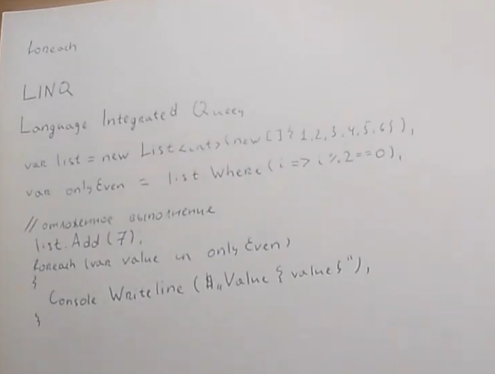 foreach
LINQ
Language Integrated Query
var list = new List<int>(new []{1,2,3,4,5,6});
var onlyEven = list.Where(i => i%2==0);
//отложенное выполнение
list.Add(7);
foreach (var value in onlyEven)
{
Console.Writeline($„Value {value}");
}